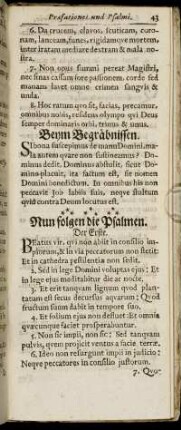 Præfationes und Psalmi. 43
6. Da crucem, clavos, scuticam, coro-
nam, lanceam, funes, rigidamque mortem,
inter iratam mediare dextram & mala no-
stra.
7. Non opus summi pereat Magistri,
nec sinas cassum fore passionem. corde sed
manans lavet omne crimen sanguis &
unda.
8. Hoc ratum quo sit, facias, precamur,
omnibus nobis, residens olympo qui Deus
semper dominaris orbi, trinus & unus.
Beym Begräbnissen.
SI bona suscepimus de manu Domini, ma-
la autem quare non sustineamus? Do-
minus dedit, Dominus abstulit, sicut Do-
mino placuit, ita factum est, sit nomen
Domini benedictum. In omnibus his non
peccavit Job labiis suis, neque stultum
quid contra Deum locutus est.
Nun folgen die Psalmen.
Der Erste.
BEatus vir, qui non abiit in consilio im-
piorum, & in via peccatorum non stetit:
Et in cathedra pestilentiæ non sedit.
2. Sed in lege Domini voluptas ejus: Et
in lege ejus meditabitur die ac nocte.
3. Et erit tanquam lignum quod plan-
tatum est secus decursus aquarum: Quod
fructum suum dabit in tempore suo.
4. Et folium ejus non defluet: Et omnia
quæcunque faciet prosperabuntur.
5. Non sic impii, non sic: Sed tanquam
pulvis, quem projicit ventus a facie terræ.
6. Ideo non resurgunt impii in judicio:
Neque peccatores in consilio justorum.
7. Quo-